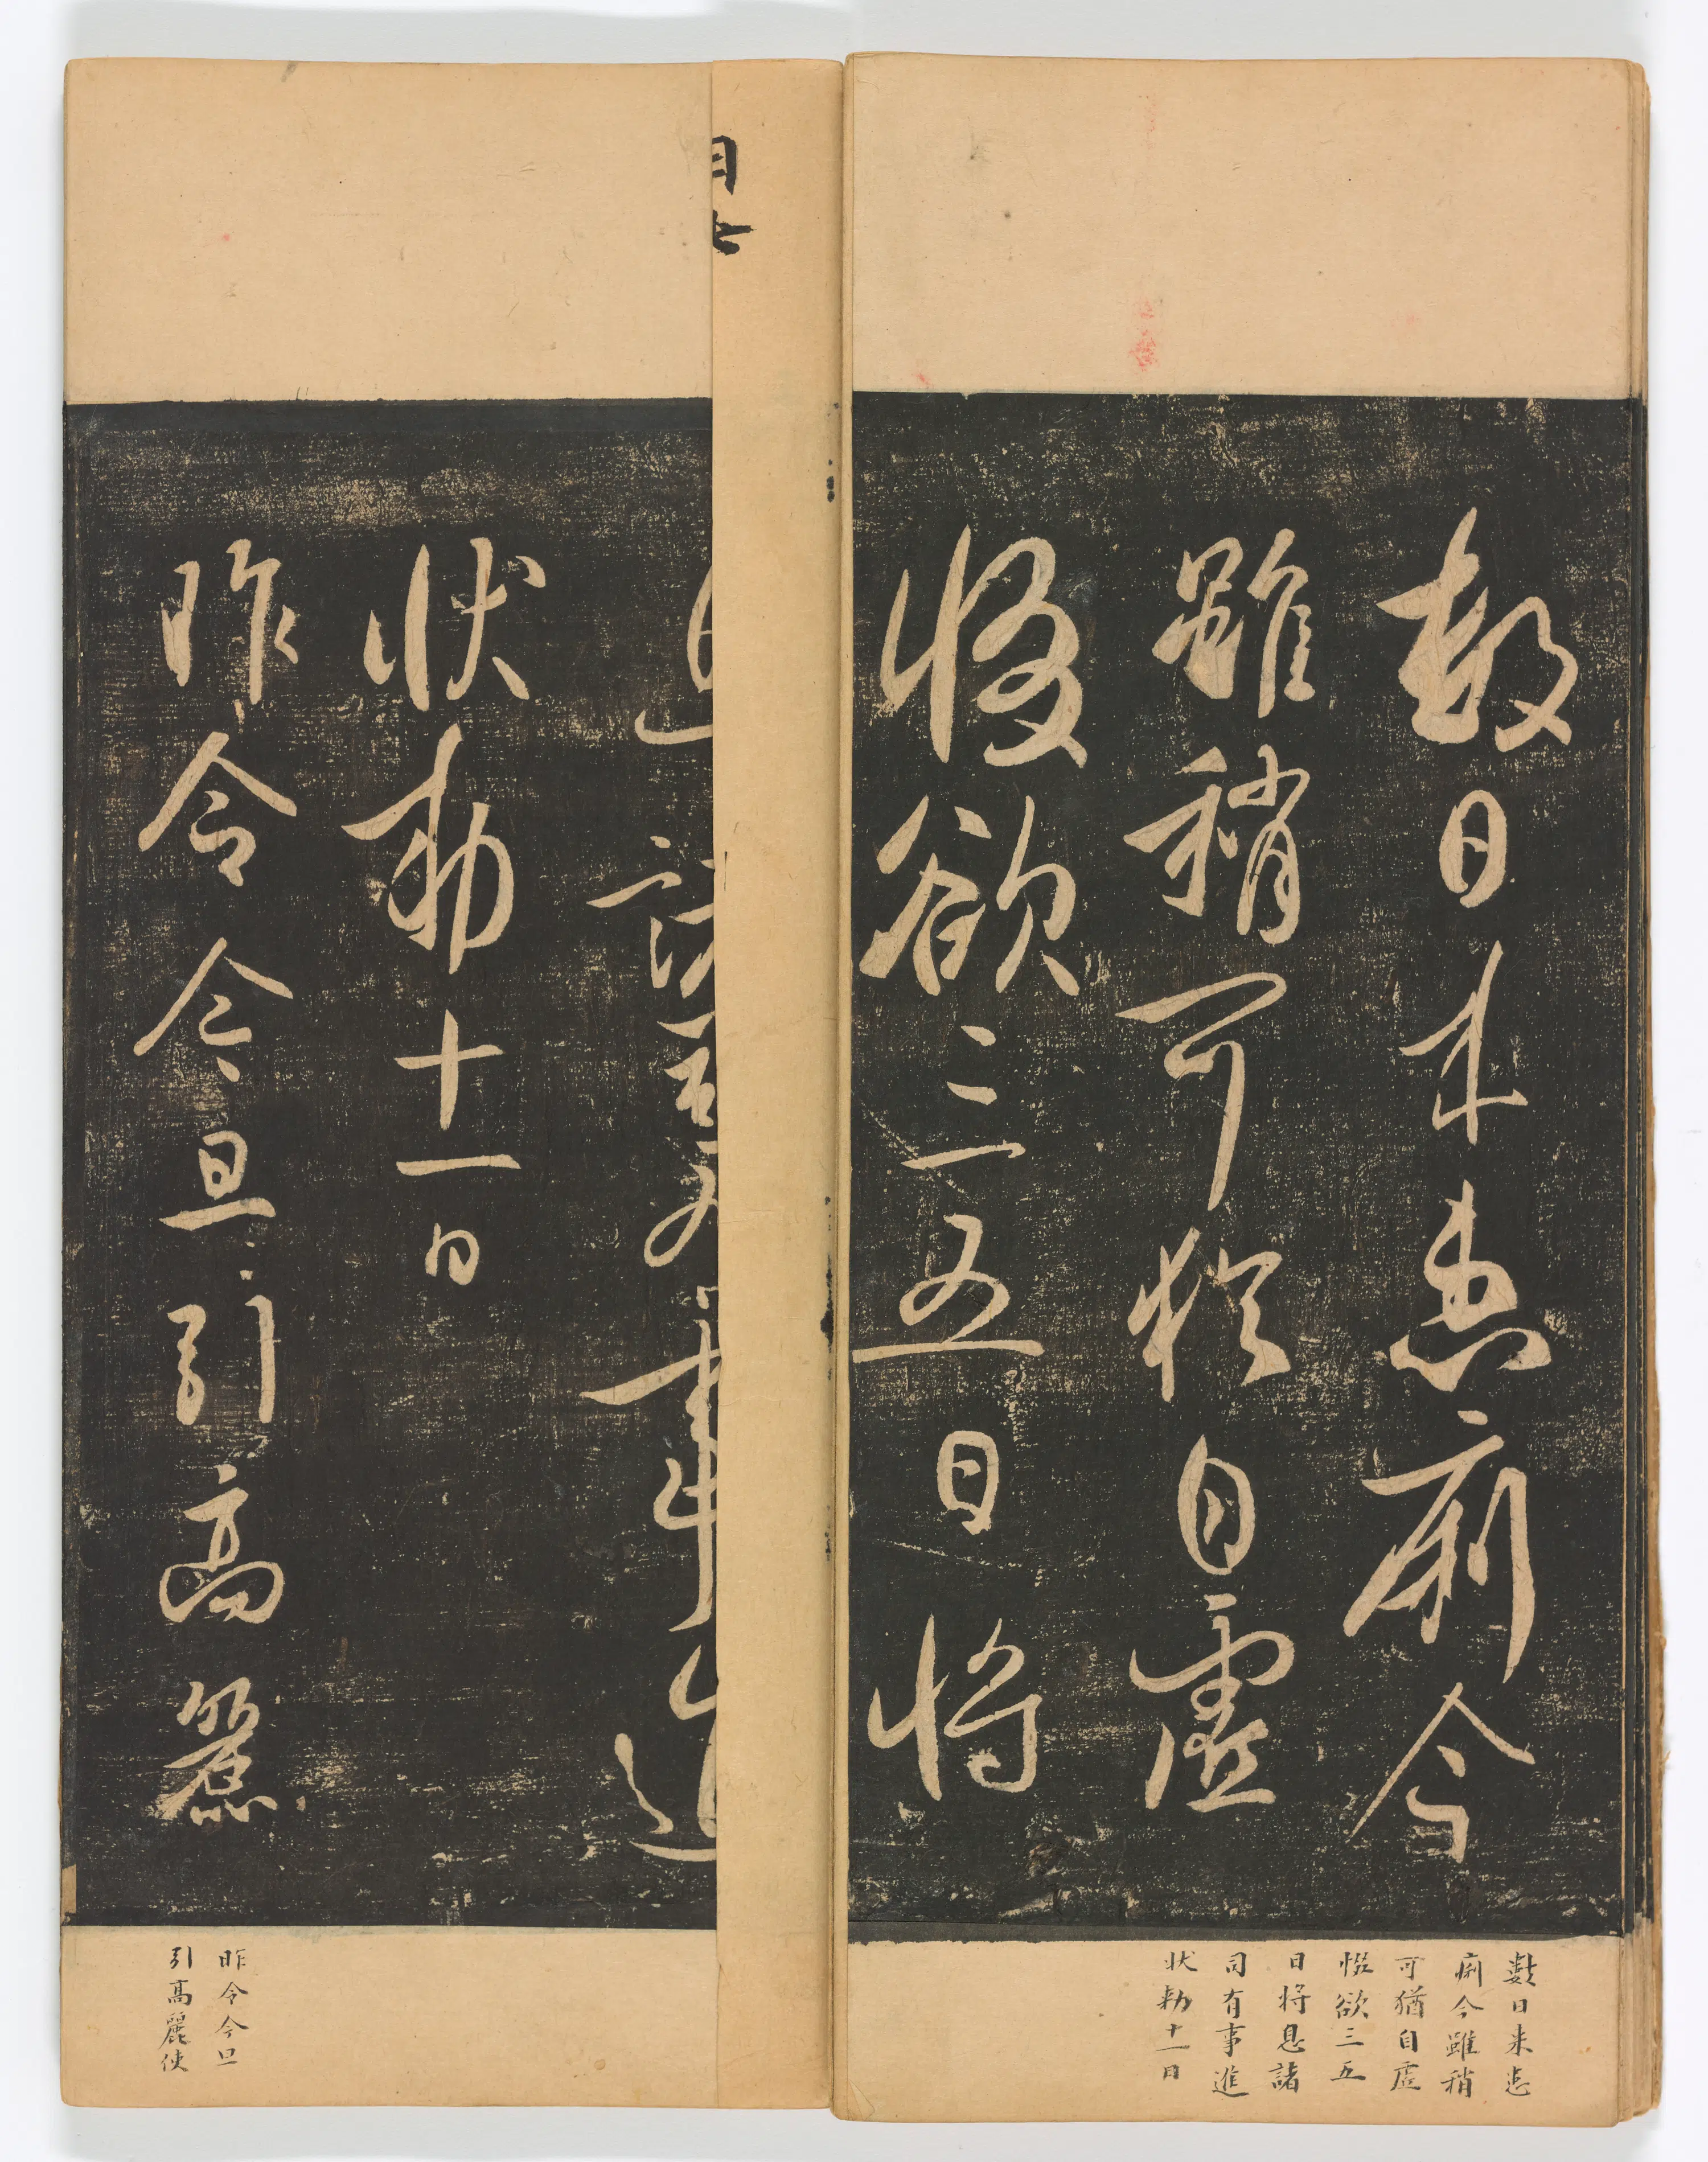 數日来患痢今
雖稍可猶自虛
惙欲三五日將
息諸司有事進
狀勅十一日
昨令今旦引高麗
數日来患
痢今雖稍
可猶自虛
惙欲三五
日将息諸
司有事進
状勅十一日
昨令今旦
引高麗使